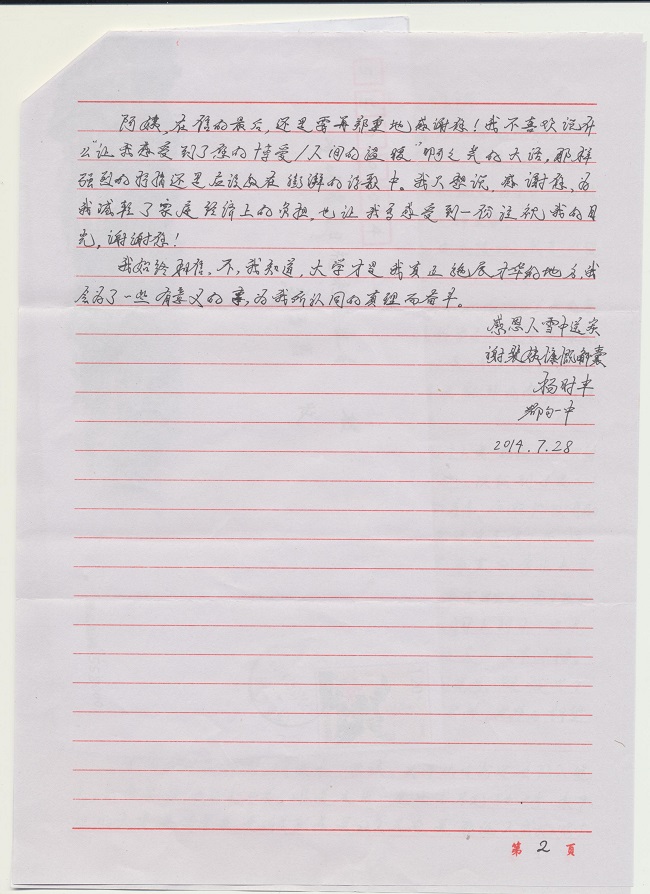 阿姨，在信的最后，还是需再郑重地感谢您！我不喜欢说什
么“让我感受到了您的博爱/人间的温暖”啊之类的大话，那样
强烈的抒情还是应该放在澎湃的诗歌中。我只想说，感谢您，为
我减轻了家庭经济上的负担，也让我多感受到一份注视我的目
光，谢谢您！
我始终相信，不，我知道，大学才是我真正施展才华的地方，我
会为了一些有意义的事，为我所认同的真理而奋斗。
感恩人雪中送炭
谢梁姨慷慨解囊
杨时丰
都匀一中
2014.7.28
第 2 頁